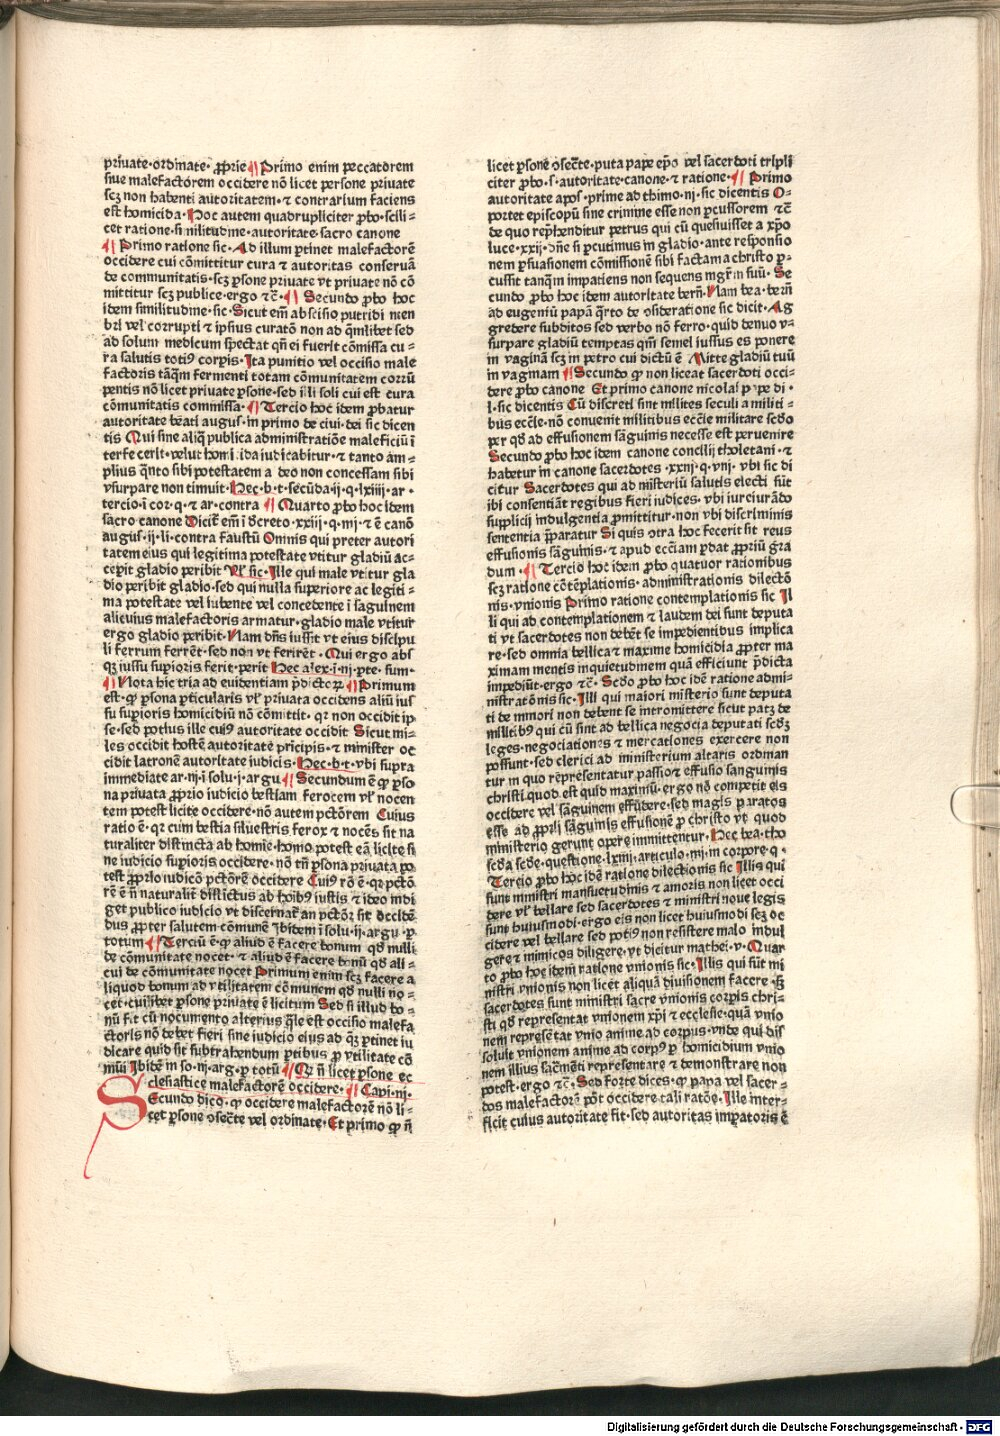 priuate·ordinate· ꝓprie ¶ Primo enim peccatorem
siue malefactorem occidere nō licet persone priuate
scꝫ non habenti autoritatem·⁊ contrarium faciens
est homicida·Hoc autem quadrupliciter ꝓbo·scili-
cet ratione·similitudine·autoritate·sacro canone
¶ Primo ratione sic·Ad illum ꝑtinet malefactorē
occidere cui cōmittitur cura ⁊ autoritas conseruā
de communitatis·scꝫ persone priuate vt priuate nō cō
mittitur scꝫ publice·ergo ⁊c̄·¶ Secundo ꝓbo hoc
idem similitudine·sic·Sicut em̄ abscisio putridi mem
bri vel corrupti ⁊ ipsius curatō non ad qm̄libet sed
ad solum medicum spectat qn̄ ei fuerit cōmissa cu-
ra salutis totiꝰ corpis·Ita punitio vel occisio male
factoris tāqm̄ fermenti totam cōmunitatem corrū
pentis nō licet priuate ꝑsone·sed illi soli cui est cura
cōmunitatis commissa·¶ Tercio hoc idem ꝓbatur
autoritate beati augus·in primo de ciui·dei sic dicen
tis Qui sine aliq̄ publica administratiōe maleficiū ī
terfecerit·velut homicida iudicabitur·⁊ tanto am-
plius qn̄to sibi potestatem a deo non concessam sibi
vsurpare non timuit·Hec·b·t·secūda·ij·q·lxiiij·ar·
tercio·ī cor·q·⁊ ar·contra ¶ Quarto ꝓbo hoc idem
sacro canone Dicit͛ em̄ ī decreto·xxiij·q·iiij·⁊ ē canō
augus·ij·li·contra faustū Omnis qui preter autori
tatem eius qui legitima potestate vtitur gladiū ac-
cepit gladio peribit Vl̓ sic·Ille qui male vtitur gla
dio peribit gladio·sed qui nulla superiore ac legiti-
ma potestate vel iubente vel concedente ī saguinem
alicuius malefactoris armatur·gladio male vtitur
ergo gladio peribit·Nam dn̄s iussit vt eius discipu
li ferrum ferrēt·sed non vt ferirēt·Qui ergo abs
qꝫ iussu supioris ferit·perit Hec alex·ī·iij·pte·sum·
¶ Nota hic tria ad euidentiam p̄dictoꝝ ¶ Primum
est·ꝙ ꝑsona ꝑticularis vl̓ priuata occidens aliū ius
su supioris homicidiū nō cōmittit·qꝛ non occidit ip
se·sed potius ille cuiꝰ autoritate occidit Sicut mi-
les occidit hostē autoritate pricipis·⁊ minister oc
cidit latronē autoritate iudicis·Hec·b·t·vbi supra
immediate ar·iij·ī solu·j·argu ¶ Secundum ē ꝙ ꝑso
na priuata ꝓprio iudicio bestiam ferocem vl̓ nocen
tem potest licite occidere·nō autem pctōrem Cuius
ratio ē·qꝛ cum bestia siluestris ferox ⁊ nocēs sit na
turaliter distincta ab homīe·homo potest eā licite si
ne iudicio supioris occidere·nō tn̄ ꝑsona priuata po
test ꝓprio iudicō pctōrē occidere Cuiꝰ rō ē·qꝛ pctō
rē ē n̄ naturalit͛ distīctus ab hoībꝰ iustis ⁊ ideo indi
get publico iudicio vt discernat͛ an pctōr sit occidē
dus ꝓpter salutem cōmunē Ibidem ī solu·ij·argu·ꝑ
totum ¶ Terciū ē·ꝙ aliud ē facere bonum qd̓ nulli
de cōmunitate nocet·⁊ aliud ē facere bonū qd̓ ali-
cui de cōmunitate nocet Primum enim scꝫ facere a
liquod bonum ad vtilitatem cōmunem qd̓ nulli no-
cet·cuilibet ꝑsone priuate ē licitum Sed si illud bo-
nū fit cū nocumento alterius q̄le est occisio malefa
ctoris nō debet fieri sine iudicio eius ad qꝫ ꝑtinet iu
dicare quid sit subtrahendum ꝑtibus ꝓ vtilitate cō
mūi Ibidē in so·iij·arg·ꝑ totū ¶ Qꝛ n̄ licet ꝑsone ec
clesiastice malefactorē occidere·¶ Capi·iij·
Secundo dico·ꝙ occidere malefactorē nō li-
cet ꝑsone ꝯsec̄te vel ordinate·Et primo ꝙ n̄
licet ꝑsonē ꝯsec̄te·puta pape ep̄o vel sacerdoti tripli
citer ꝓbo·s·autoritate·canone·⁊ ratione·¶ Primo
autoritate apos·prime ad thimo·iij·sic dicentis O-
portet episcopū sine crimine esse non ꝑcussorem ⁊c̄
de quo rep̄henditur petrus qui cū quesiuisset a xp̄o
luce·xxij·dn̄e si ꝑcutimus in gladio·ante responsio
nem ꝑsuasionem cōmissionē sibi factam a christo ꝑ-
cussit tanqm̄ impatiens non sequens mgr̄m suū·Se
cundo ꝓbo hoc idem autoritate bern̄·Nam bea·bern̄
ad eugeniū papā q̄rto de ꝯsideratione sic dicit·Ag
gredere subditos sed verbo nō ferro·quid denuo v-
surpare gladiū temptas qm̄ semel iussus es ponere
in vaginā scꝫ in petro cui dictū ē Mitte gladiū tuū
in vaginam ¶ Secundo ꝙ non liceat sacerdoti occi-
dere ꝓbo canone Et primo canone nicolai pape di·
l·sic dicentis Cū discreti sint milites seculi a militi-
bus eccl̓e·nō conuenit militibus eccl̓ie militare sc̄do
per qd̓ ad effusionem sāguinis necesse est peruenire
Secundo ꝓbo hoc idem canone concilij tholetani·⁊
habetur in canone sacerdotes·xxiij·q·viij·vbi sic di
citur Sacerdotes qui ad mīsteriū salutis electi sūt
ibi consentiāt regibus fieri iudices·vbi iurciurādo
supplicij indulgentia ꝓmittitur·non vbi discriminis
sententia p̄paratur Si quis ꝯtra hoc fecerit sit reus
effusionis sāguinis·⁊ apud eccl̓iam ꝑdat ꝓpriū grā
dum·¶ Tercio hoc idem ꝓbo quatuor rationibus
scꝫ ratione cōtēplationis·administrationis dilectō
nis·vnionis Primo ratione contemplationis sic Il
li qui ad contemplationem ⁊ laudem dei sunt deputa
ti vt sacerdotes non debēt se impedientibus implica
re·sed omnia bellica ⁊ maxime homicidia ꝓpter ma
ximam mentis inquietudinem quā efficiunt p̄dicta
impediūt·ergo ⁊c̄·Sc̄do ꝓbo hoc idē ratione admi-
nistratōnis sic·Illi qui maiori misterio sunt deputa
ti de minori non debent se intromittere sicut patꝫ de
militibꝰ qui cū sint ad bellica negocia deputati sc̄dꝫ
leges·negociationes ⁊ mercationes exercere non
possunt·sed clerici ad ministerium altaris ordinan
tur in quo rēpresentatur passio ⁊ effusio sanguinis
christi quod est quid maximū·ergo nō competit eis
occidere vel sāguinem effūdere·sed magis paratos
esse ad ꝓprij sāguinis effusionē ꝓ christo vt quod
ministerio gerunt opere immittentur·Hec bea·tho
sc̄da sc̄de·questione·lxiiij·articulo·iiij·in corpore·q·
Tercio ꝓbo hoc idē ratione dilectionis sic Illis qui
sunt ministri mansuetudinis ⁊ amoris non licet occi
dere vl̓ bellare sed sacerdotes ⁊ ministri noue legis
sunt huiusmodi·ergo eis non licet huiusmodi scꝫ oc
cidere vel bellare sed potiꝰ non resistere malo indul
gere ⁊ inimicos diligere·vt dicitur mathei·v·Quar
to ꝓbo hoc idem ratione vnionis sic·Illis qui sūt mi
nistri vnionis non licet aliquā diuisionem facere·sꝫ
sacerdotes sunt ministri sacre vnionis corpis chri-
sti qd̓ representat vnionem xp̄i ⁊ ecclesie·quā vnio
nem represētat vnio anime ad corpus·vnde qui dis
soluit vnionem anime ad corpꝰ ꝑ homicidium vnio
nem illius sacm̄eti representare ⁊ demonstrare non
potest·ergo ⁊c̄·Sed forte dices·ꝙ papa vel sacer-
dos malefactorē pōt occidere tali ratōe·Ille inter-
ficit cuius autoritate fit·sed autoritas impatoris ē